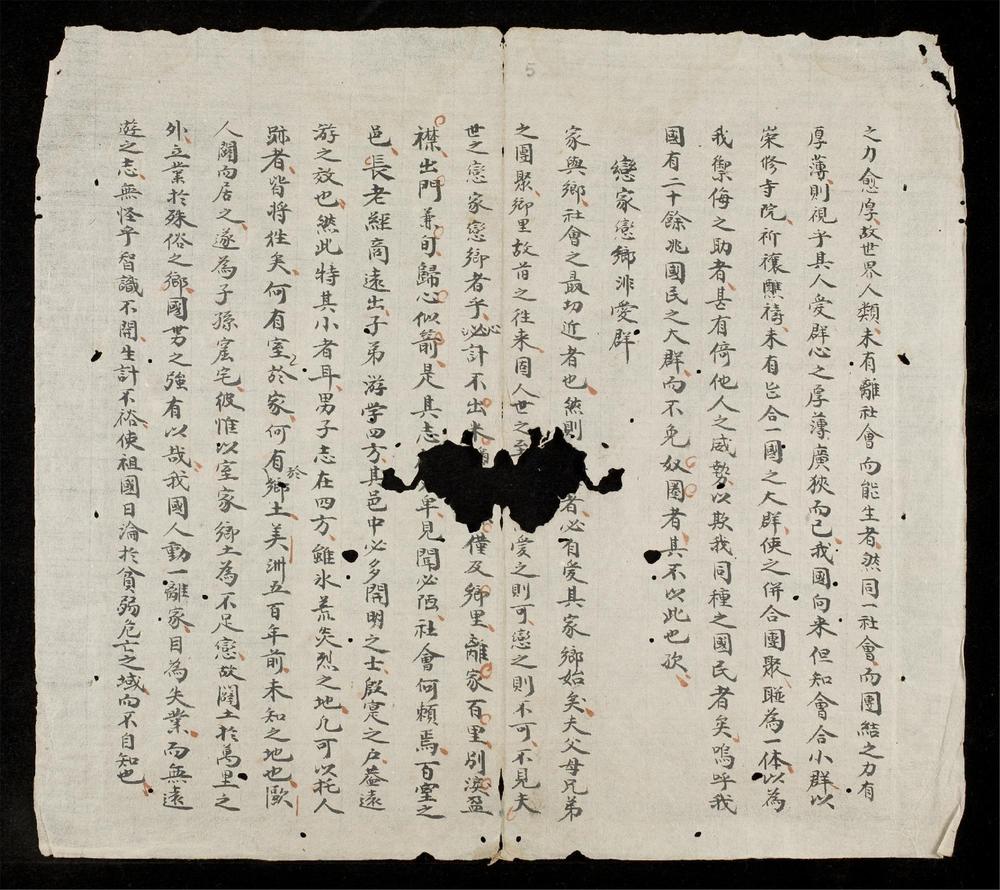 5
之力愈厚故世界人類未有離社會而能生者然同一社會而團結之力有
厚薄則視乎其人受群心之厚薄廣狹而已我國向来但知會合小群以
崇修寺院祈禳醮禱未有旨合一國之大群使之併合團聚聯為一体以為
我禦侮之助者甚有倚他人之威勢以欺我同種之國民者矣嗚呼我
國有二十餘兆國民之大群而不免奴圈者其不以此也歟
戀家戀鄉非愛群
家與鄉社會之最切近者也然則 者必有愛其家鄉始矣夫父母兄弟
之團聚鄉里故旧之往来固人世之至 愛之則可戀之則不可不見夫
世之戀家戀鄉者乎必計不出米 僅及鄉里離家百里別淚盈
襟出門兼旬歸心似箭是其志 卑見聞必陋社會何賴焉百室之
邑長老經商遠出子弟游学四方其邑中必多開明之士殷寔之户葢遠
游之效也然此特其小者耳男子志在四方雖氷荒炎烈之地凡可以托人
跡者皆將往矣何有室於家何有於鄉土美洲五百年前未知之地也歐
人闢而居之遂為子孫窟宅彼惟以室家鄉土為不足戀故闢土於萬里之
外立業於殊俗之鄉國勢之強有以哉我國人動一離家目為失業而無遠
遊之志無怪乎智識不開生計不裕使祖國日淪於貧弱危亡之域而不自知也